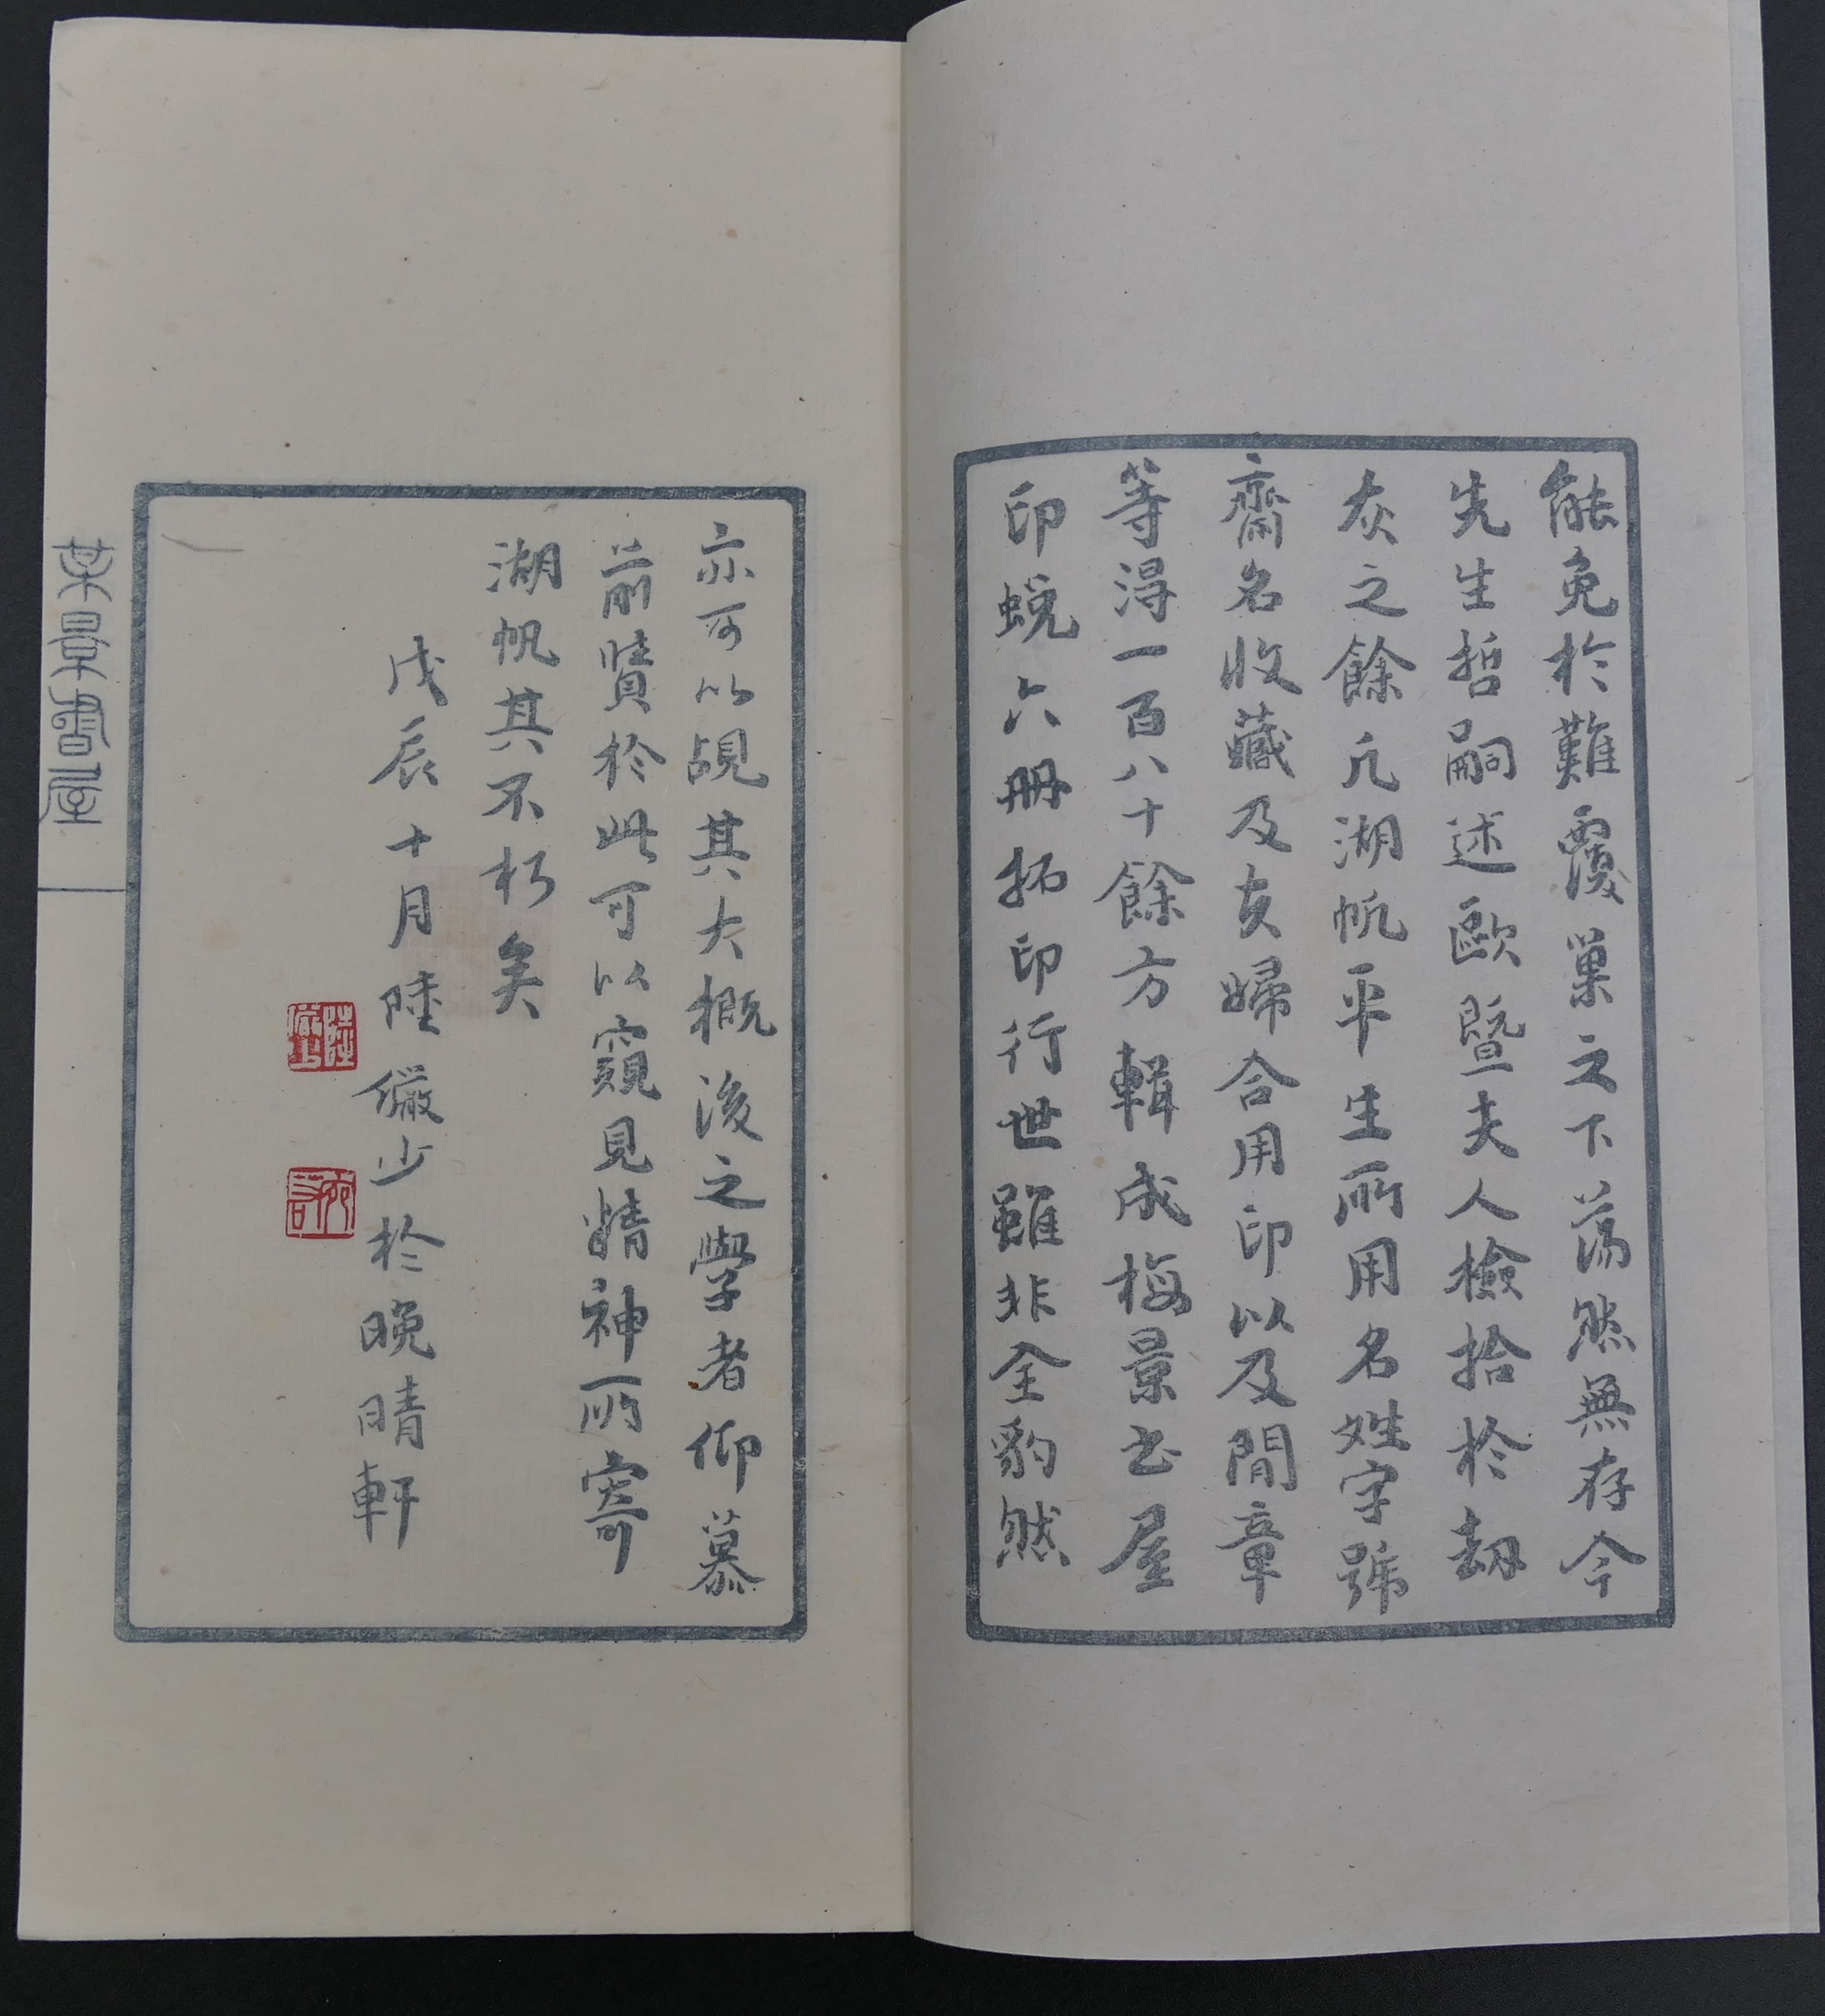 能免於難覆巢之下蕩然無存今
先生哲嗣述歐暨夫人檢拾於劫
灰之餘凡湖帆平生所用名姓字號
齋名收藏及夫婦合用印以及閒章
等淂一百八十餘方輯成梅景书屋
印蜕六册拓印行世雖非全豹然
亦可以覘其大概後之學者仰慕
前賢於此可以窺見精神所寄
湖帆其不朽矣
戊辰十月陸儼少於晚晴軒
陸儼少
宛若
某景書屋